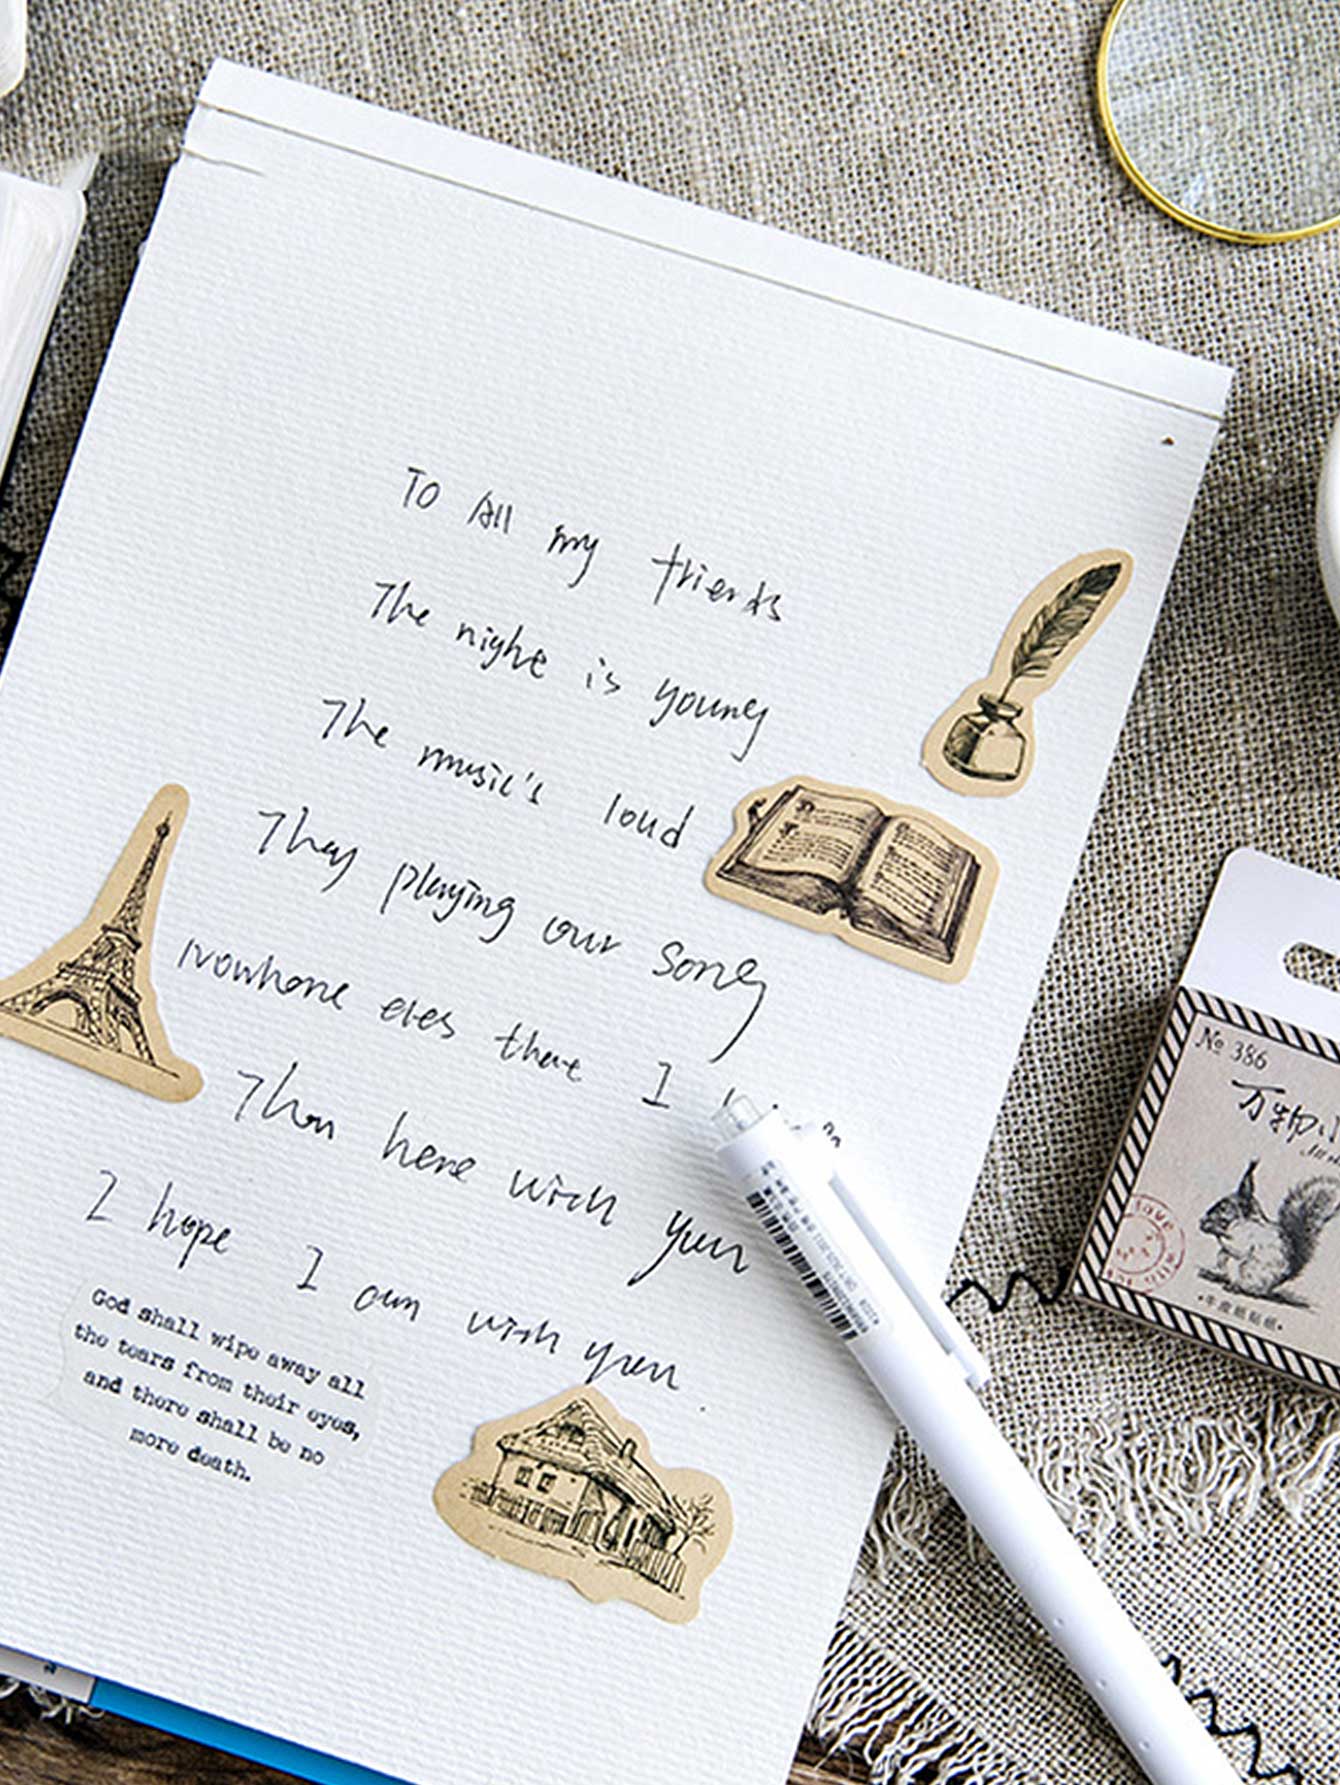 To All my friends
The night is young
The music's loud
They playing our song
Nowhere eles there I
Than here with you
I hope I am with you
God shall wipe away all
the tears from their eyes,
and there shall be no
more death.
№ 386
万物
love